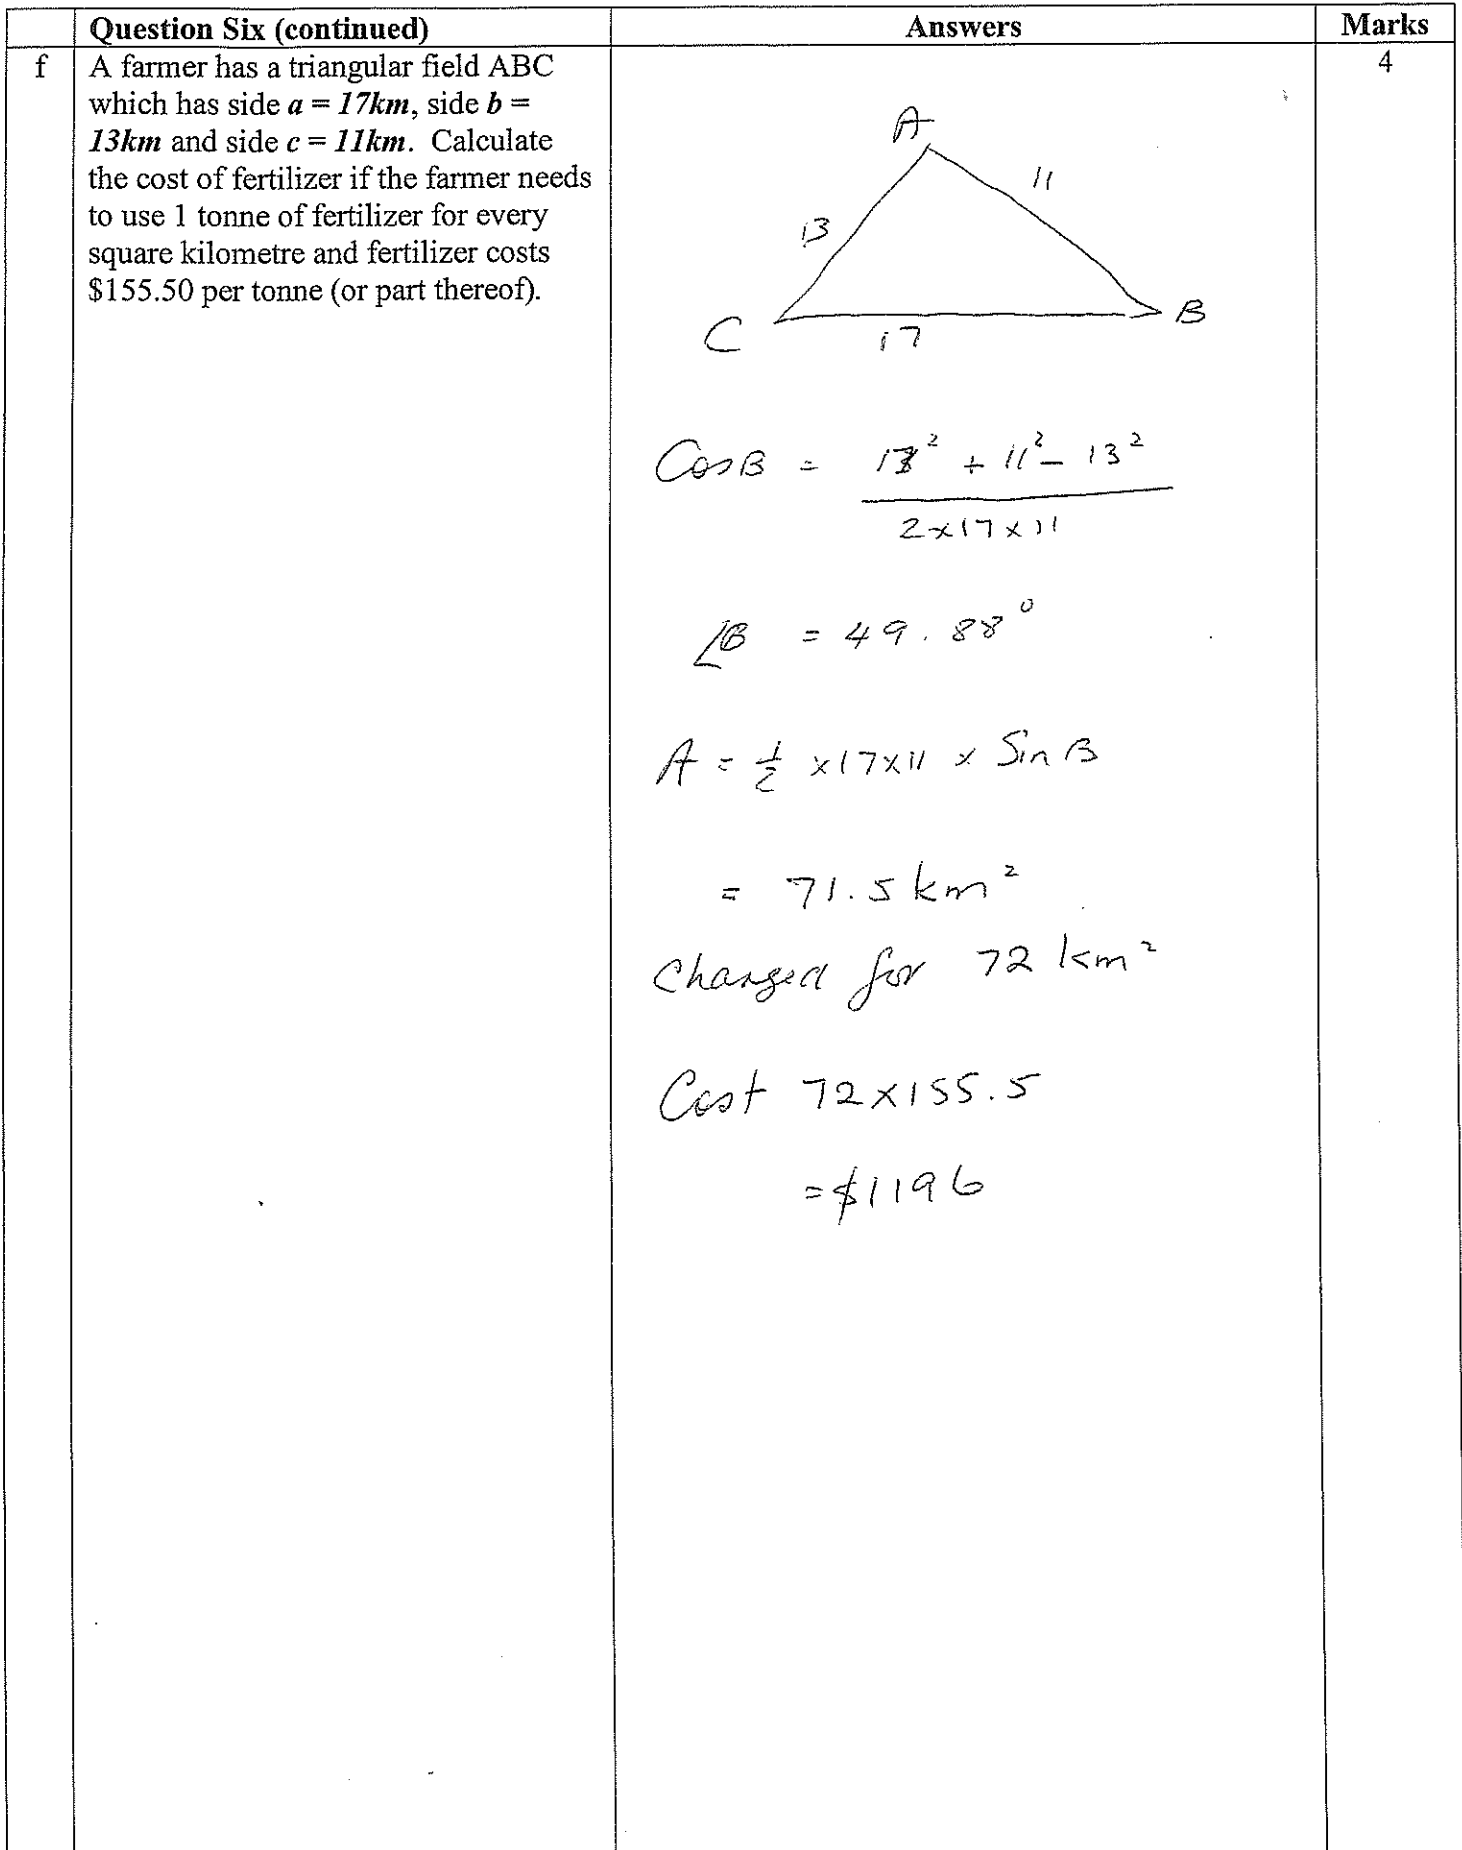 Question Six (continued) Answers Marks
f A farmer has a triangular field ABC 4
which has side a = 17km, side b =
13km and side c = 11km. Calculate
the cost of fertilizer if the farmer needs
to use 1 tonne of fertilizer for every
square kilometre and fertilizer costs
$155.50 per tonne (or part thereof).
A
11
13
C B
17
Cos B = 17² + 11² - 13²
2×17×11
∠B = 49.88°
A = ½ ×17×11 × Sin B
= 71.5 km²
Charged for 72 km²
Cost 72×155.5
= $1196